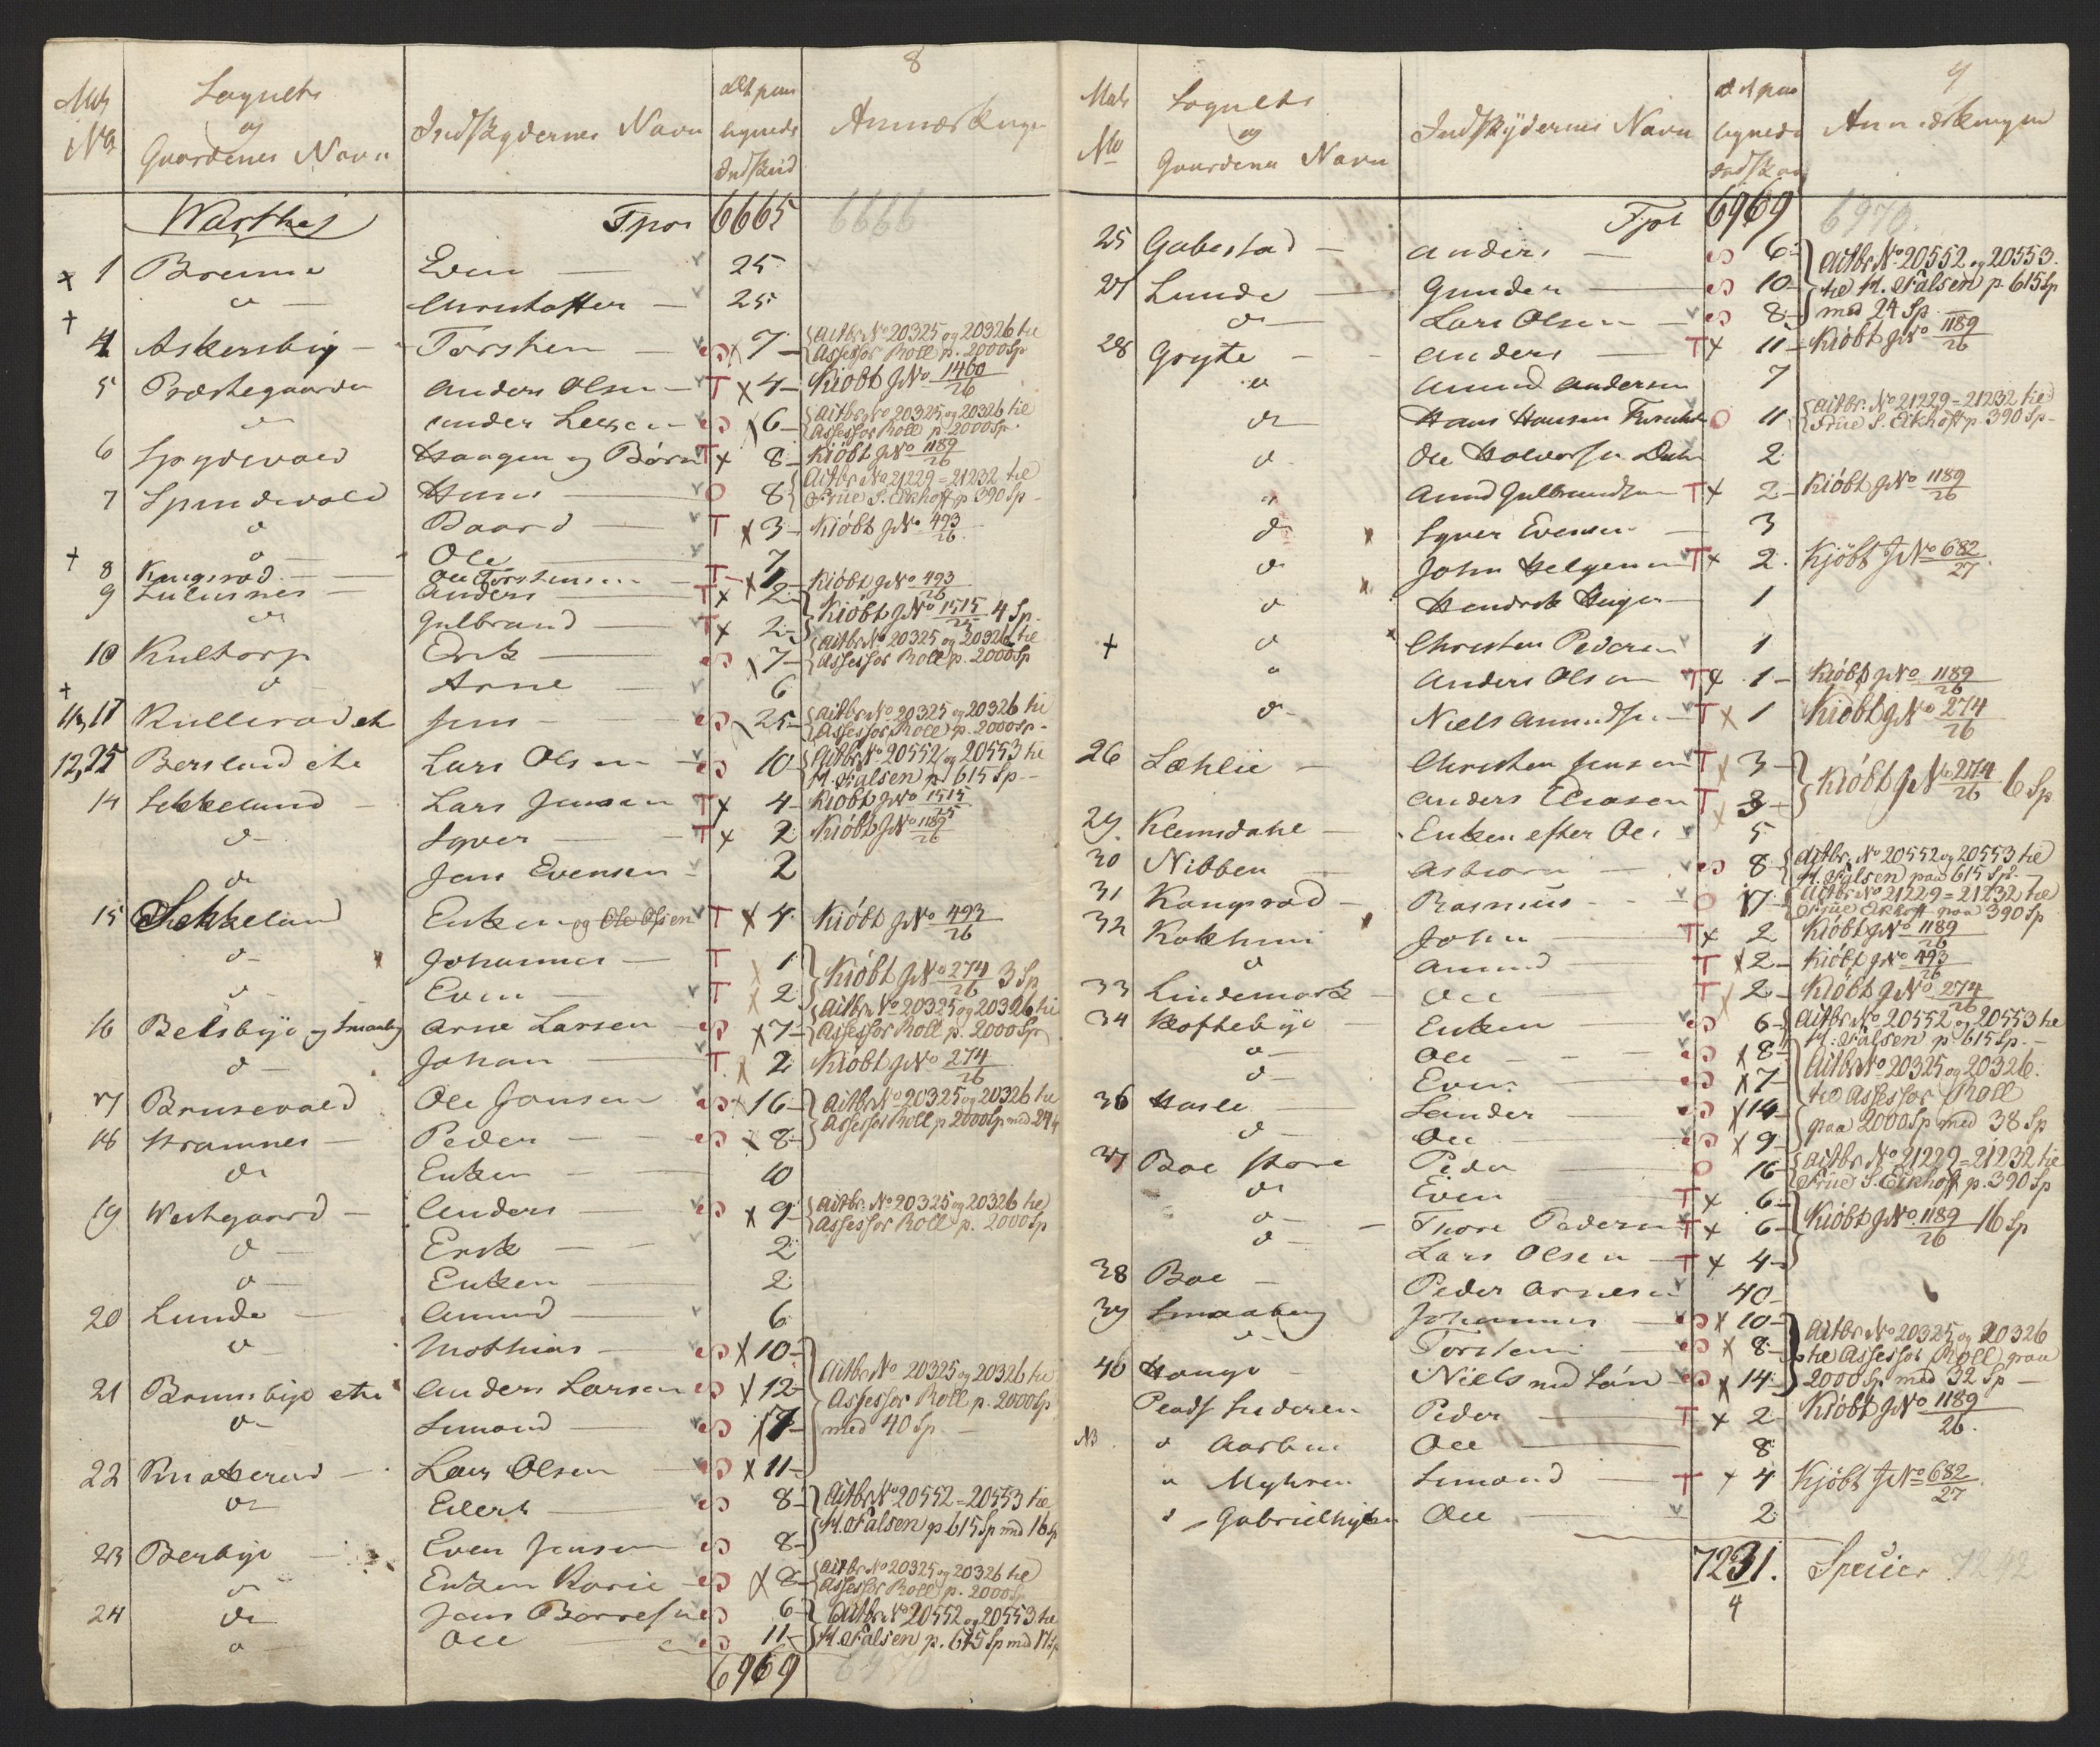 8
Sognets
og
No Gaardenes Navn Indskydernes Navn Indskud Anmærkninger
Tpor 6665 6666
1 Brenne Even 25
Christoffer 25
4 Askersbÿ Torsten 7 Actbr. No 20325 og 20326 til
Assessor Roll p. 2000 Sp
5 Præstegaarden Anders Olsen T x 4 Kiöbt J No 1460/26
6 Actbr. No 20325 og 20326 til
Assessor Roll p. 2000 Sp.
6 Spydevold Haagen og Børn T x 8 Kiöbt J No 1189/26
7 Spydevold Hans O 8 Actbr No 21229 = 21232 til
Frue S. Eckhoff p 390 Sp
d Baard T x 3 Kiöbt J No 493/26
d Ole 7
8 Kangsrød Ole Torstensen T x 1 Kiöbt J No 493/26
9 Anders T x 2 Kiöbt J No 1515/25 4 Sp.
d Gulbrand T x 2
10 Kultorp Erik 7 Actbr No 20325 og 20326 til
Assessor Roll p. 2000 Sp
d Arne 6
11, 17 Kullerød etc Jens 25 Actbr. No 20325 og 20326 til
Assessor Roll p. 2000 Sp.
12, 25 Berglund etc Lars Olsen 10 Actbr No 20552 og 20553 til
H. Falsen p 615 Sp.
14 Sekkelund Lars Jensen T x 4 Kiöbt J No 1515/25
d Syver T x 2 Kiöbt J No 1189/26
d Jens Evensen 2
15 Sekkelund Enken og Ole Olsen T x 4 Kiöbt J No 493/26
d Johannes T 1 Kiöbt J No 274/26 3 Sp
d Even T 2
16 Belsbye og Smaaberg Arne Larsen x 7 Actbr No 20325 og 20326 til
Assessor Roll p. 2000 Sp
d Johan T 2 Kiöbt J No 274/26
17 Brusevold Ole Jansen 16 Actbr No 20325 og 20326 til
Assessor Roll p 2000 Sp med 24
18 Kramnes Peder x 8
d Enken 10
19 Westgaard Anders x 9 Actbr. No 20325 og 20326 til
Assessor Roll p. 2000 Sp
d Erik 2
d Enken 2
20 Lunde Amund 6
d Mathias x 10 Actbr No 20325 og 20326 til
21 Brunsbye etc Anders Larsen x 12 Assessor Roll p. 2000 Sp
d Simand 7 med 40 Sp.
22 Knaterud Lars Olsen x 11
d Eilert 8 Actbr No 20552 = 20553 til
H. Falsen p 615 Sp med 16 Sp
23 Berbye Even Jensen 8
d Enken Karie x 8 Actbr No 20325 og 20326 til
Assessor Roll p. 2000 Sp
24 d Jens Borresen 6 Actbr No 20552 og 20553 til
d Ole 11 H. Falsen p. 615 Sp med 17 Sp
6969 6970
9
Sognets
og
No Gaardenes Navn Indskydernes Navn Anmærkninger
Tpor 6969 6970
25 Gabestad Anders 6 Actbr No 20552 og 20553
27 Lunde Gunder 10 til H. Falsen p. 615 Sp
d Lars Olsen 8 med 24 Sp.
28 Gryte Anders T x 11 Kiöbt J No 1189/26
d Amund Andersen 7
d Hans Hansen O 11 Actbr. No 21229 = 21232 til
Frue S. Eckhoff p. 390 Sp
d Ole Halvorsen 2
d Amund Gulbrandsen T x 2 Kiöbt J No 1189/26
d Syver Evensen 3
d John Helgesen T x 2. Kjöbt J No 682/27
d Hendrik 1
d Christen Pedersen 1
d Anders Olsen T x 1 Kiöbt J No 1189/26
d Niels Amundsen T x 1 Kiöbt J No 274/26
26 Læhlie Christen Jensen T x 3 Kiöbt J No 274/26 6 Sp
Anders Eliasen T x 3
29. Klemsdahl Enken efter Ole 5
30 Nibben Asbiørn 8 Actbr. No 20552 og 20553 til
H. Falsen paa 615 Sp.
31 Kangsrød Rasmus O 17 Actbr No 21229 = 21232 til
Frue Eckhoff paa 390 Sp
32 John T x 2 Kiöbt J No 1189/26
d Amund T x 2 Kiöbt J No 493/26
33 Lindemark Ole T 2 Kiöbt J No 274/26
34 Enken 6 Actbr No 20552 og 20553 til
H. Falsen p 615 Sp.
d Ole x 8 Actbr No 20325 og 20326.
d Even x 7 til Assessor Roll
36 Hasle Sander x 14 paa 2000 Sp med 38 Sp
d Ole x 9
37 Boe store Peder O 16 Actbr No 21229 = 21232 til
Frue S. Eckhoff p. 390 Sp
d Even T x 6 Kiöbt J No 1189/26 16 Sp
d Thore Pedersen T x 6
d Lars Olsen T x 4
38 Boe Peder Arnesen 40
39 Smaaberg Johannes x 10 Actbr No 20325 og 20326
d Torsten x 8 til Assessor Roll paa
40 Hauge Niels med Søn x 14 2000 Sp med 32 Sp
Plads Peder T x 2 Kiöbt J No 1189/26.
NB d Ole 8
d Myhren Simand T x 4 Kjöbt J No 682/27
d Ole 2
7231. Specier 7242
4